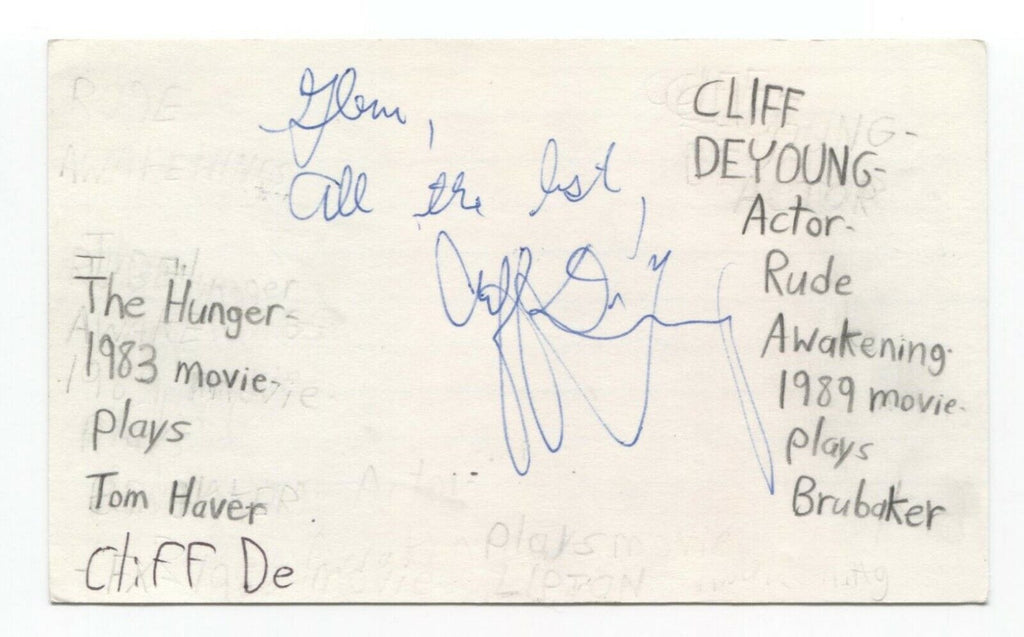 Glenn,
All the best,
Cliff DeYoung
CLIFF
DEYOUNG-
Actor-
Rude
Awakening-
1989 movie-
plays
Brubaker
The Hunger-
1983 movie-
plays
Tom Haver
CliFF De
plays movie
LIPTON
Actor